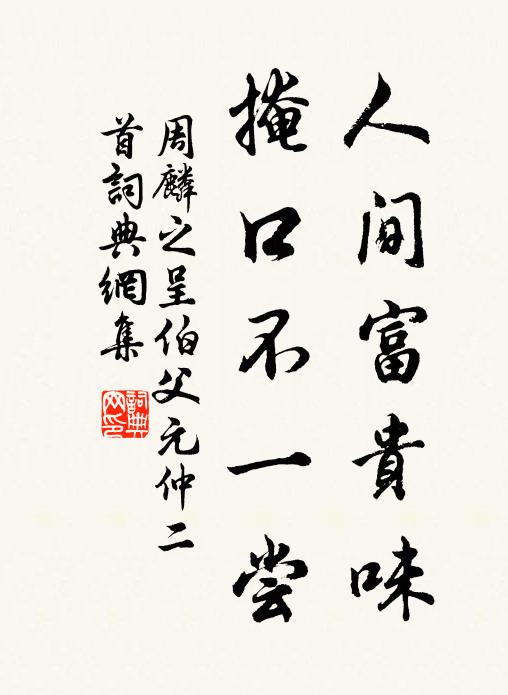 人间富貴味
掩口不一尝
周麟之呈伯父元仲二
首詞典網集
詞典
网印